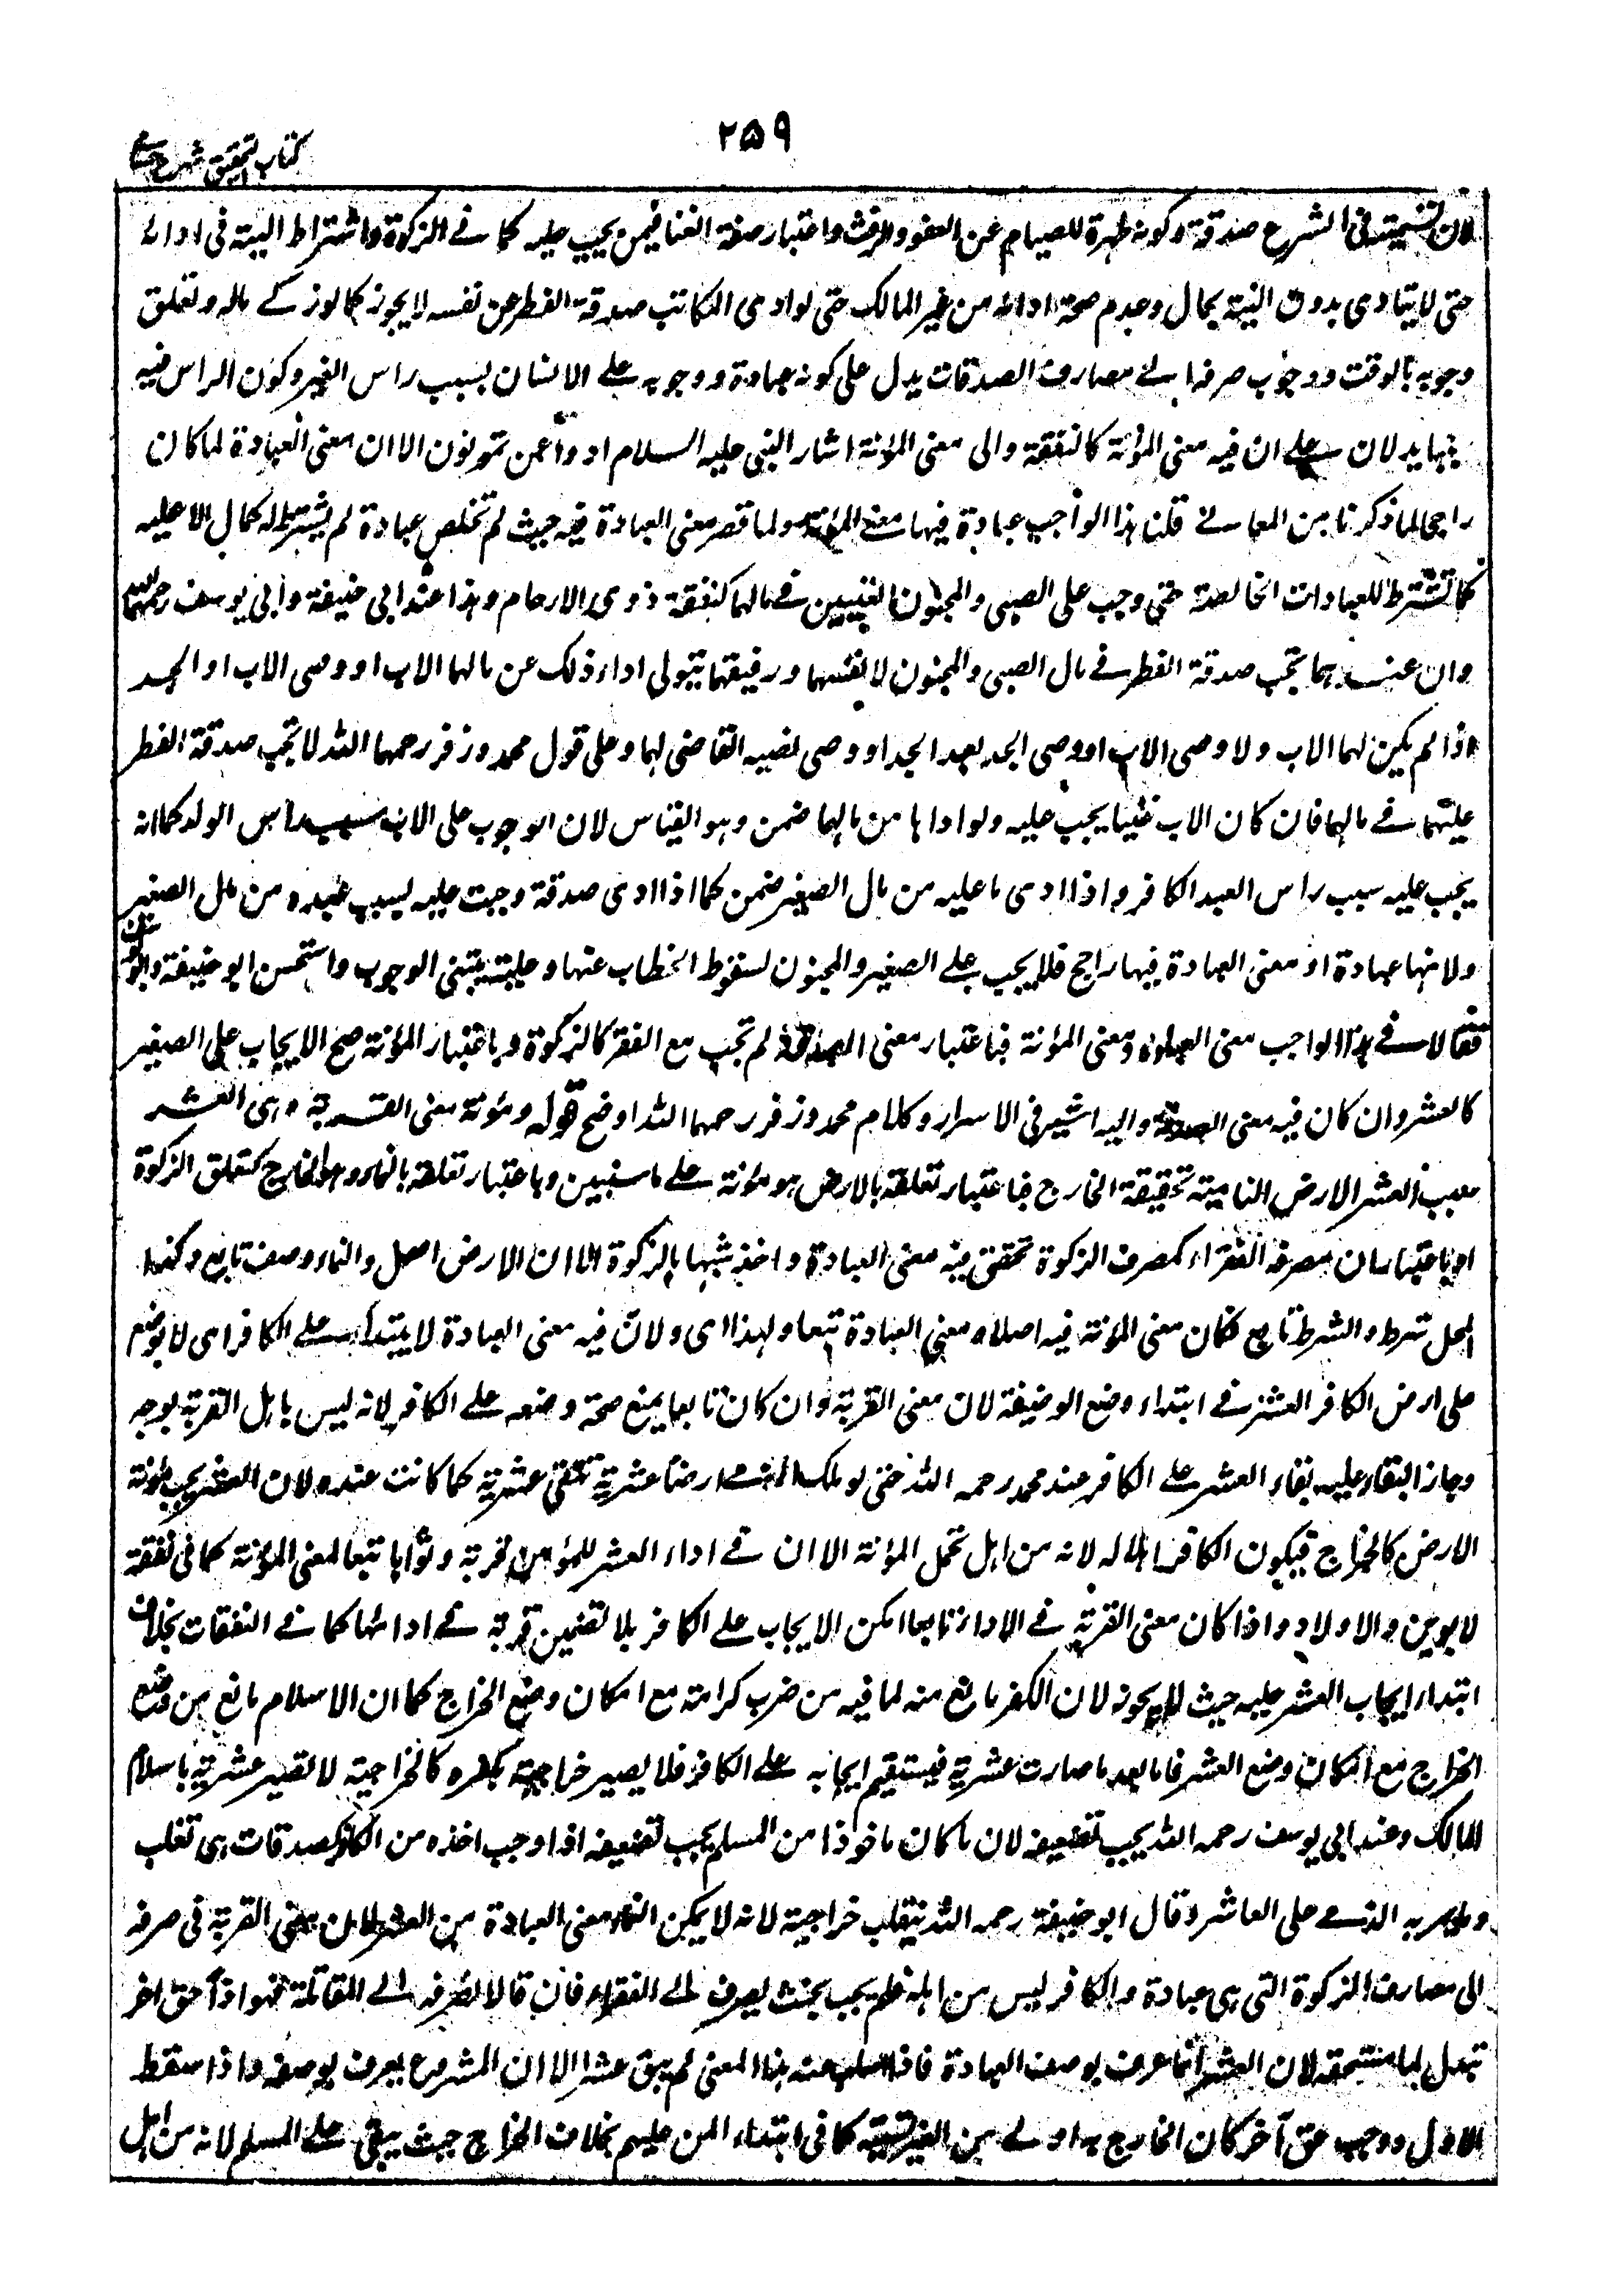 ٢٥٩
كتاب تحقيق شرح حسامي
لان تسميته في الشرع صدقة وكونه طهرة للصيام عن اللغو والرفث واعتبار صفة الغنا فيمن يجب عليه كما في الزكوة واشتراط النية في ادائه
حتى لا يتادى بدون النية بحال وعدم صحة ادائه من غير المالك حتى لو ادى المكاتب صدقة الفطر عن نفسه لا يجوز كما لو زكى ماله وتعلق
وجوبه بالوقت ووجوب صرفه الى مصارف الصدقات يدل على كونه عبادة ووجوبه على الانسان بسبب راس الغير وكون الراس فيه
سببا يدلان على ان فيه معنى المؤنة كالنفقة والى معنى المؤنة اشار النبي عليه السلام ادوا عمن تمونون الا ان معنى العبادة لما كان
راجحا لما ذكرنا من المعاني قلنا هذا الواجب عبادة فيها معنى المؤنة ولما قصر معنى العبادة فيه حيث لم تخلص عبادة لم يشترط له كمال الاهلية
كما تشترط للعبادات الخالصة حتى وجب على الصبي والمجنون الغنيين في مالهما كنفقة ذوي الارحام وهذا عند ابي حنيفة وابي يوسف رحمهما الله
وان عندهما تجب صدقة الفطر في مال الصبي والمجنون لانفسهما ورقيقهما يتولى اداء ذلك عن مالهما الاب او وصي الاب او الجد
اذا لم يكن لهما الاب ولا وصي الاب او وصي الجد بعد الجد او وصي نصبه القاضي لهما وعلى قول محمد وزفر رحمهما الله لا تجب صدقة الفطر
عليهما في مالهما فان كان الاب غنيا يجب عليه ولو اداها من مالهما ضمن وهو القياس لان الوجوب على الاب بسبب راس الولد كما انه
يجب عليه سبب راس العبد الكافر واذا ادى ما عليه من مال الصغير ضمن كما اذا ادى صدقة وجبت عليه لسبب عبده من مال الصغير
ولانها عبادة او معنى العبادة فيها راجح فلا يجب على الصغير والمجنون لسقوط الخطاب عنهما وعليته يبتني الوجوب واستحسن ابو حنيفة وابو يوسف
فقالا في هذا الواجب معنى العبادة ومعنى المؤنة فباعتبار معنى الصدقة لم تجب مع الفقر كالزكوة وباعتبار المؤنة صح الايجاب على الصغير
كالعشر وان كان فيه معنى الصدقة واليه اشير في الاسرار وكلام محمد وزفر رحمهما الله اوضح قوله ومؤنة معنى القربة وهي العشر
سبب العشر الارض النامية بحقيقة الخارج فباعتبار تعلقه بالارض هو مؤنة على ما سنبين وباعتبار تعلقه بالنماء وهو الخارج كتعلق الزكوة
او باعتبار ان مصرفه الفقراء كمصرف الزكوة تحقق فيه معنى العبادة واخذ شبها بالزكوة الا ان الارض اصل والنماء وصف تابع وكذا
المحل شرط والشرط تابع فكان معنى المؤنة فيه اصلا ومعنى العبادة تبعا ولهذا اي ولان فيه معنى العبادة لا يبتدأ على الكافر اي لا يوضع
على ارض الكافر العشر في ابتداء وضع الوظيفة لان معنى القربة وان كان تابعا يمنع صحة وضعه على الكافر لانه ليس باهل القربة بوجه
وجاز البقاء عليه بقاء العشر على الكافر عند محمد رحمه الله حتى لو ملك الذمي ارضا عشرية تبقى عشرية كما كانت عنده لان العشر يجب مؤنة
الارض كالخراج فيكون الكافر اهلا له لانه من اهل تحمل المؤنة الا ان في اداء العشر للمؤمن قربة وثوابا تبعا لمعنى المؤنة كما في نفقة
لابوين والاولاد واذا كان معنى القربة في الاداء تابعا امكن الايجاب على الكافر بلا تضمين قربة في ادائها كما في النفقات بخلاف
ابتداء ايجاب العشر عليه حيث لا يجوز لان الكفر مانع منه لما فيه من ضرب كرامة مع امكان وضع الخراج كما ان الاسلام مانع من وضع
الخراج مع امكان وضع العشر فاما بعد ما صارت عشرية فيستقيم ايجابه على الكافر فلا يصير خراجية بكفره كالخراجية لا تصير عشرية باسلام
المالك وعند ابي يوسف رحمه الله يجب تضعيفه لان ما كان ماخوذا من المسلم يجب تضعيفه اذا وجب اخذه من الكافر كصدقات بني تغلب
وما يمر به الذمي على العاشر وقال ابو حنيفة رحمه الله تنقلب خراجية لانه لا يمكن الغاء معنى العبادة من العشر لان معنى القربة في صرفه
الى مصارف الزكوة التي هي عبادة والكافر ليس من اهله فلم يجب بحيث يصرف الى الفقراء فان قالا نصرفه الى المقاتلة فهو اذا حق اخر
تبدل لما مستحقه لان العشر انما عرف بوصف العبادة فاذا سلب عنه هذا المعنى لم يبق عشرا الا ان المشروع يعرف بوصفه واذا سقط
الاول ووجب حق آخر كان الخارج به اولى من العشر تسمية كما في ابتداء المن عليهم بخلاف الخراج حيث يبقى على المسلم لانه من اهل